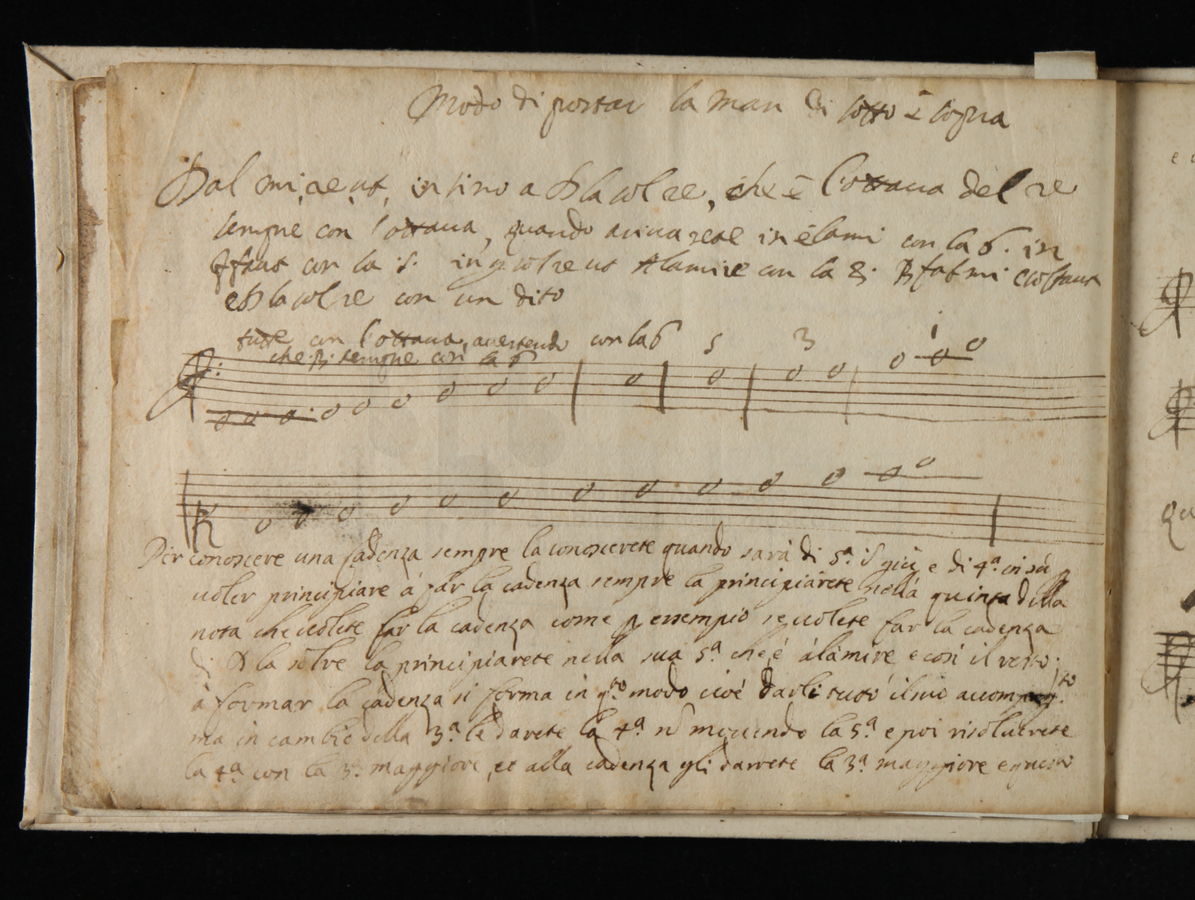 Modo di portar la man di sotto è sopra
Dal mi, re ut, insino a D la sol re, che è l'ottava del re
sempre con l'ottava, quando arivarete in élami con la 6. in
ffaut con la 5. in gsolreut Alamire con la 3.
e D la sol re con un dito
tutte con l'ottava, avertendo con la 6 5 3 1
che sempre con la 6
Per conoscere una cadenza sempre la conoscerete quando sarà di 5.ª in giù e di 4.ª in sù
voler principiare à far la cadenza sempre la principiarete nella quinta della
nota che volete far la cadenza come p essempio se volete far la cadenza
di D la solre la principiarete nella sua 5.ª che è álamire e così il resto.
à formar la cadenza si forma in q.to modo cioè darli tutto il suo accompag.to
ma in cambio della 3.ª le darete la 4.ª movendo la 5.ª e poi risolverete
la 4.ª con la 3.ª maggiore, et alla cadenza gli darete la 3.ª maggiore e questa